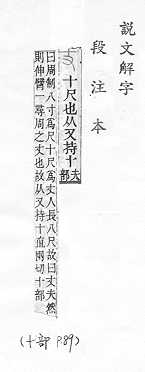 說文解字
段注本
十尺也从又持十
夫部
曰周制八寸爲尺十尺爲丈人長八尺故曰丈夫然
則伸臂一尋周之丈也故从又持十直兩切十部
(十部 P.89)